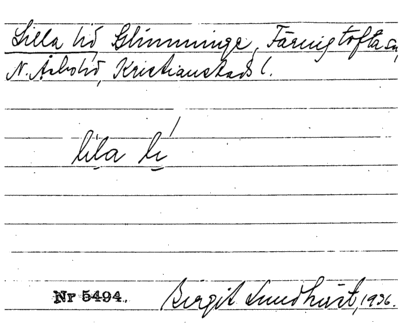 Lilla Lid Glimminge, Färingtofta sn,
N. Åsbo hd, Kristianstads l.
lila li
Nr 5494. Birgit Lundhärt, 1936.